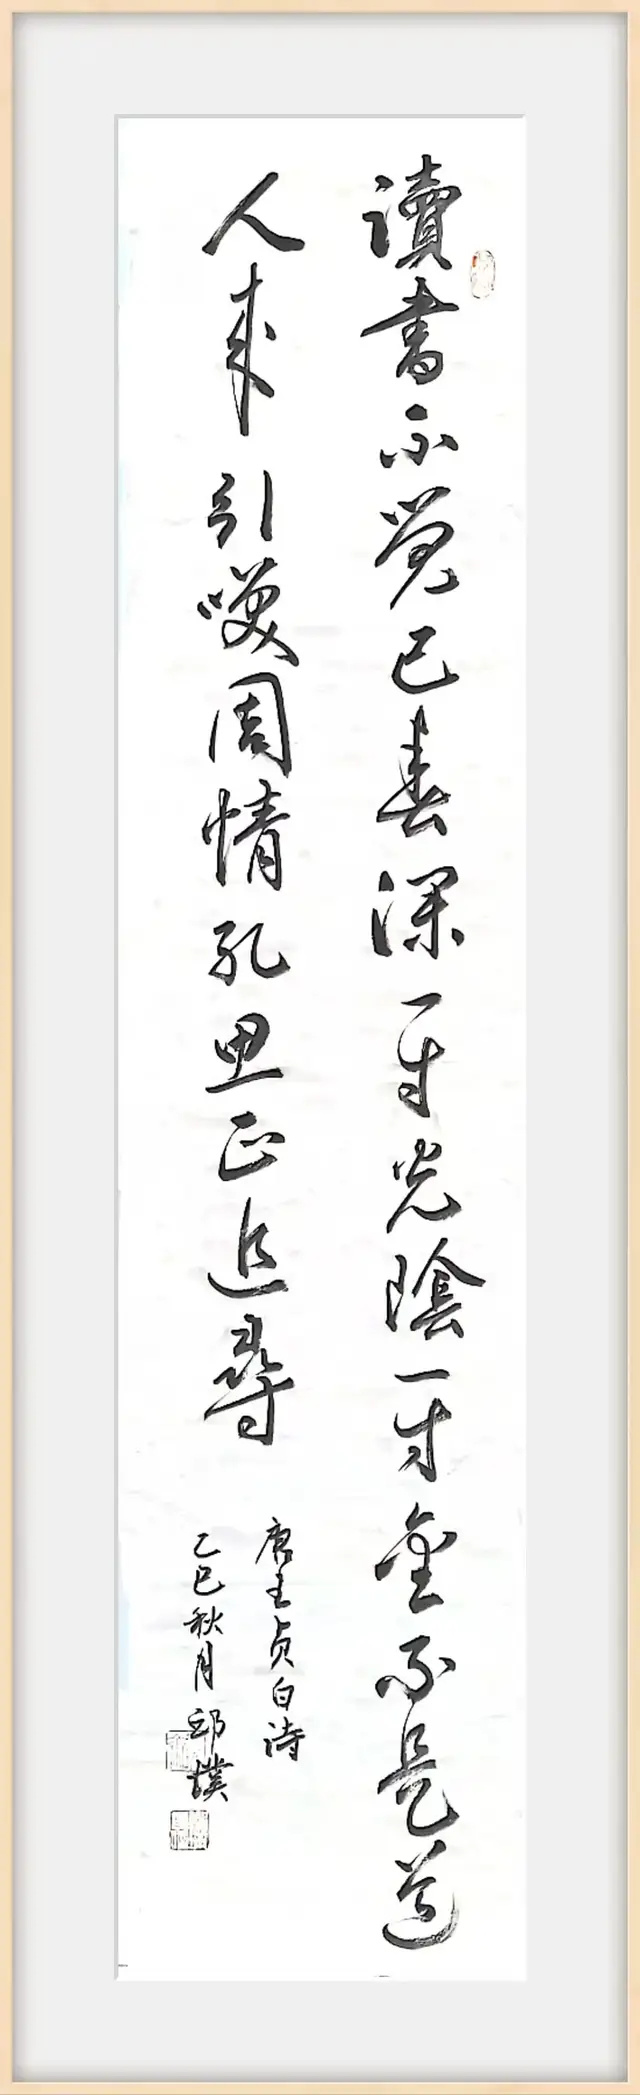 讀書不覺已春深一寸光陰一寸金不是道
人来引笑周情孔思正追尋
唐王贞白诗
乙巳秋月邱璞